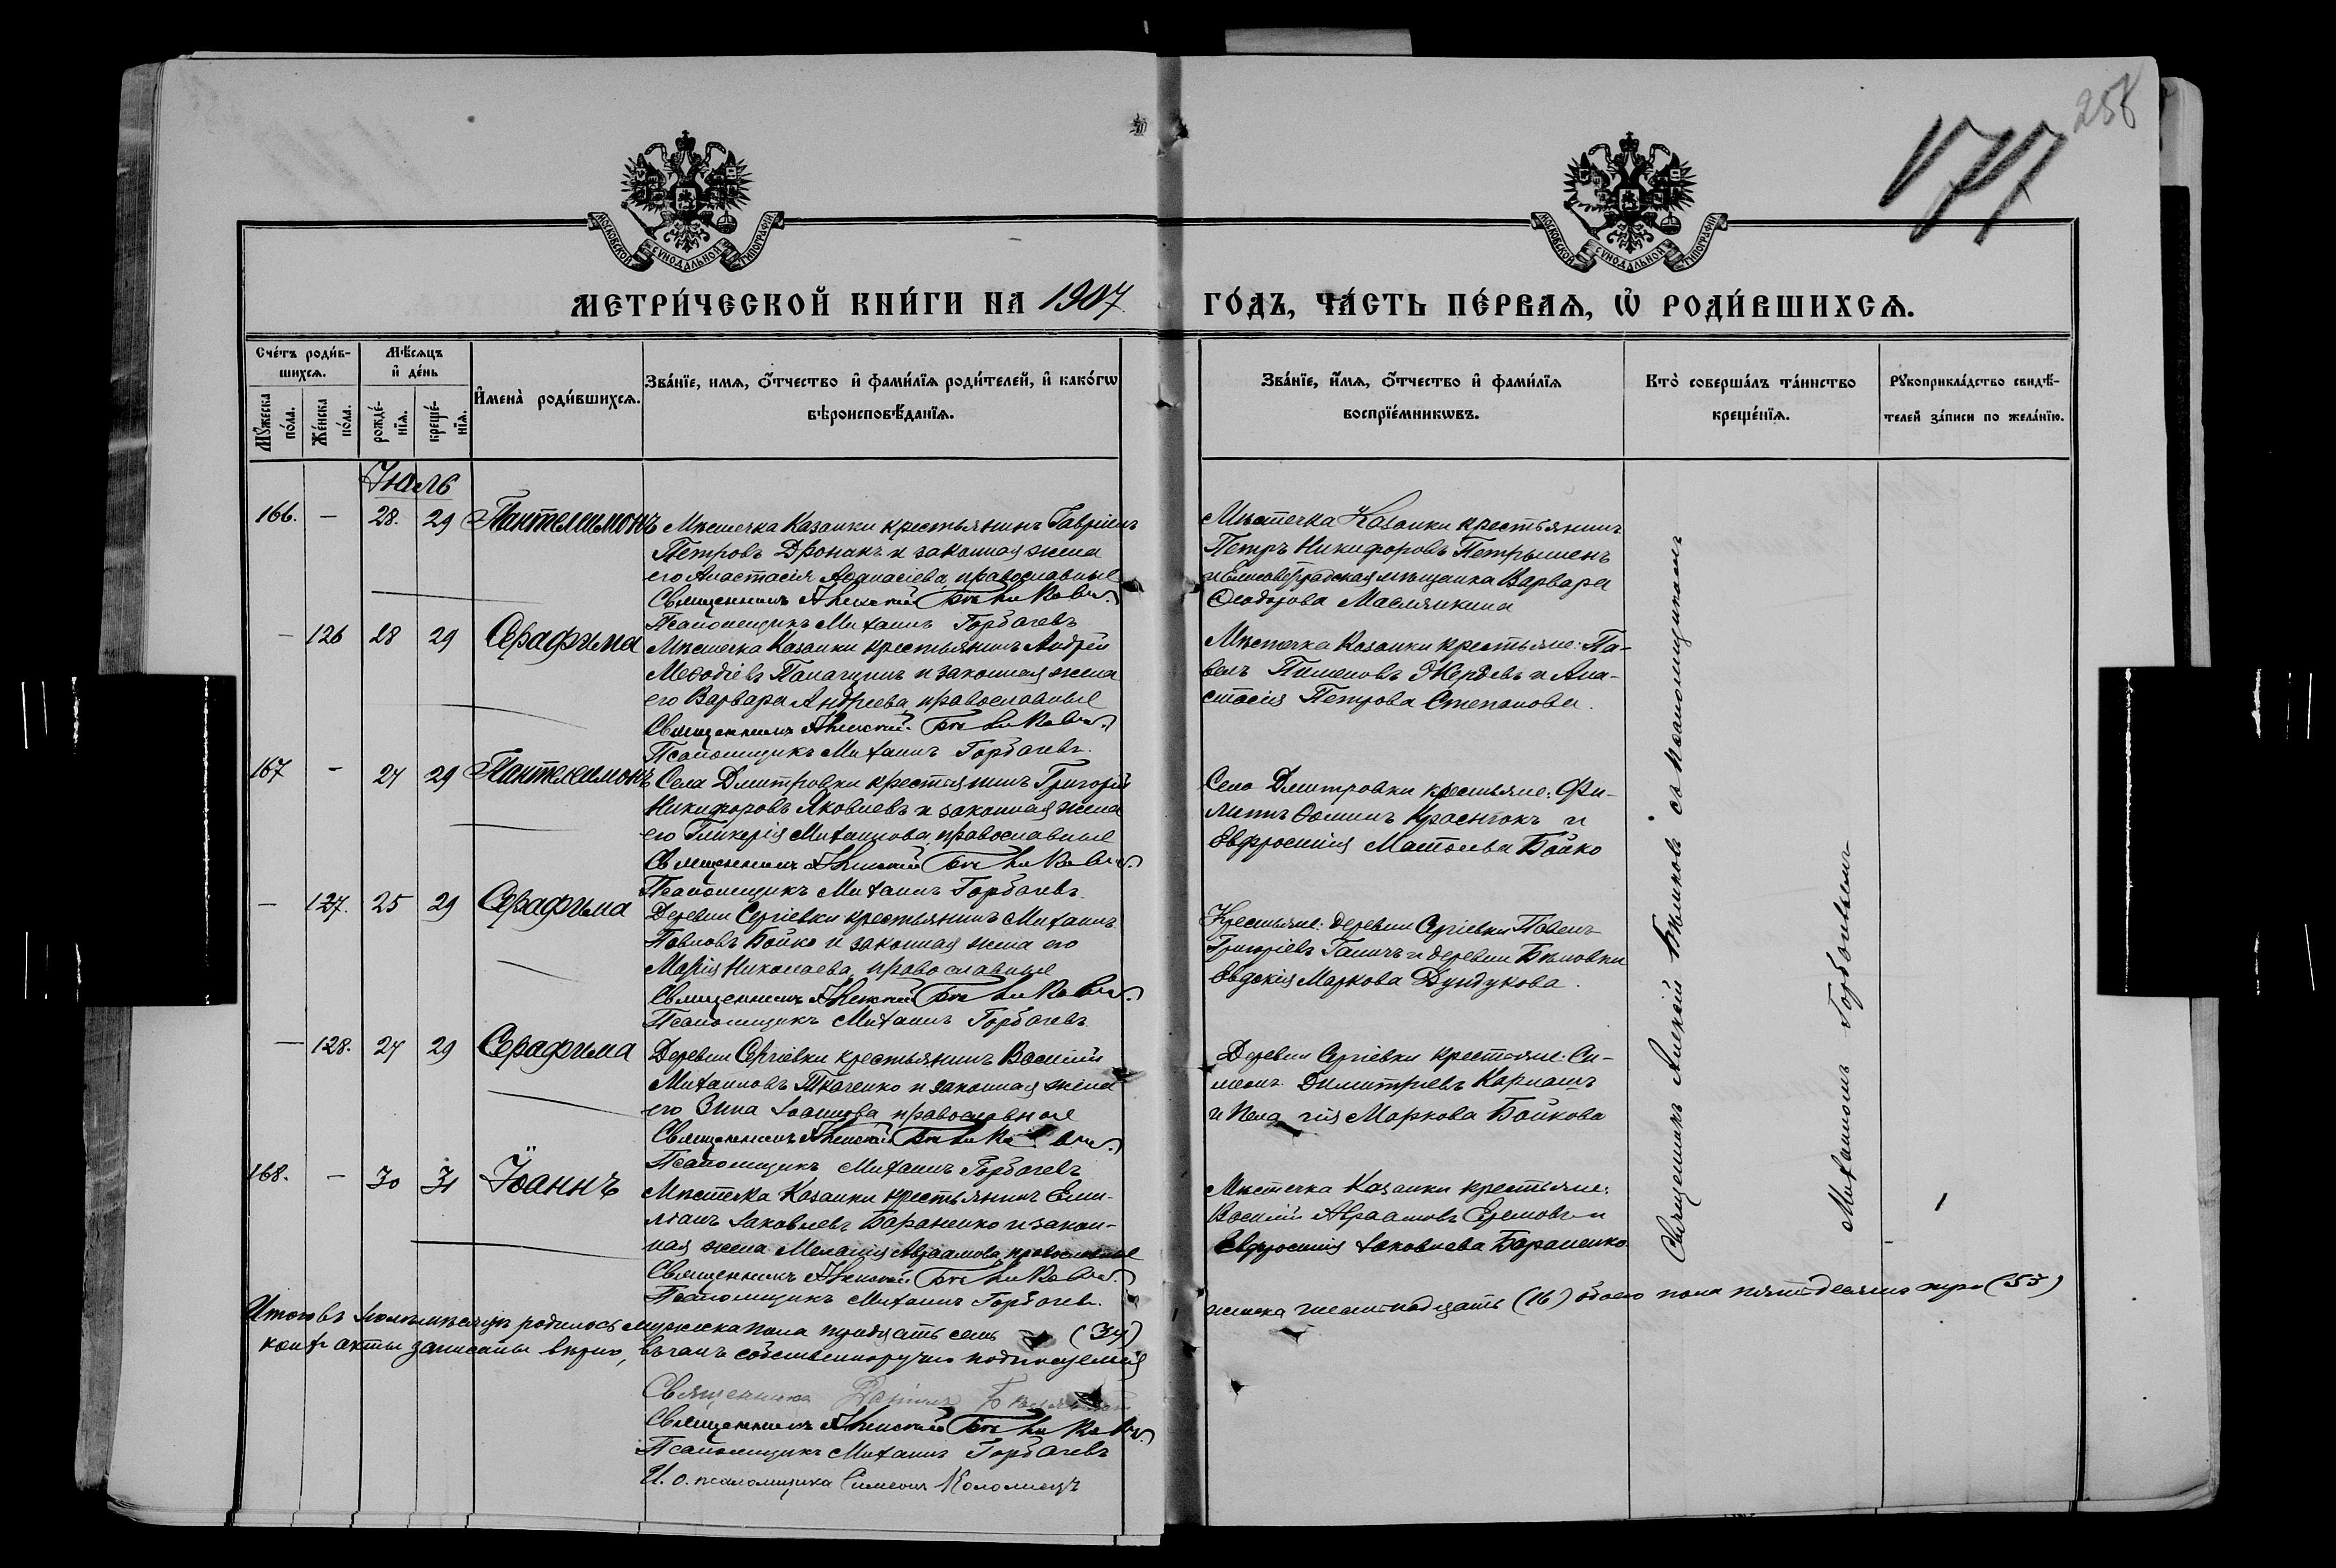 258
177
МОСКОВСКОЙ СѴНОДАЛЬНОЙ ТИПОГРАФІИ
МОСКОВСКОЙ СѴНОДАЛЬНОЙ ТИПОГРАФІИ
МЕТРИ́ЧЕСКОЙ КНИ́ГИ НА 1907 ГО́ДЪ, ЧА́СТЬ ПЕ́РВАѦ, Ѡ҆ РОДИ́ВШИХСѦ.
Сче́тъ роди́в-
шихсѧ.
Мѣ́сѧцъ
и҆ де́нь
Мꙋ́жеска
по́ла.
Же́нска
по́ла.
рожде́-
нїѧ.
креще́-
нїѧ.
И҆мена̀ роди́вшихсѧ.
Зва́нїе, имѧ, ѻ҆́тчество и҆ фами́лїѧ роди́телей, и҆ како́гѡ
вѣроисповѣ́данїѧ.
Зва́нїе, и҆́мѧ, ѻ҆́тчество и҆ фами́лїѧ
воспрїе́мникѡвъ.
Кто̀ соверша́лъ та́инство
креще́нїѧ.
Рꙋкоприкла́дство свидѣ́-
телей за́писи по жела́нїю.
Іюль
166. — 28. 29 Пантелеимонъ
Мѣстечка Казанки крестьянинъ Гавріилъ
Петровъ Дронакъ и законная жена
его Анастасія Аѳанасіева, православные
Священникъ Алексій Бѣликовъ
Псаломщикъ Михаилъ Горбачевъ
Мѣстечка Казанки крестьянинъ
Петръ Никифоровъ Петрышенъ
и Елисаветградская мѣщанка Варвара
Ѳеодорова Маслянкина
— 126 28 29 Серафима
Мѣстечка Казанки крестьянинъ Андрей
Меѳодіевъ Паланцинъ и законная жена
его Варвара Андреева, православные
Священникъ Алексій Бѣликовъ
Псаломщикъ Михаилъ Горбачевъ.
Мѣстечка Казанки крестьяне: Па-
велъ Пименовъ Жердевъ и Ана-
стасія Петрова Степанова.
167 — 27 29 Пантелеимонъ
Села Дмитровки крестьянинъ Григорій
Никифоровъ Яковлевъ и законная жена
его Гликерія Михаилова, православные
Священникъ Алексій Бѣликовъ
Псаломщикъ Михаилъ Горбачевъ.
Села Дмитровки крестьяне: Фи-
липпъ Ѳоминъ Краснюкъ и
Евфросинія Матѳеева Бойко
— 127. 25 29 Серафима
Деревни Сергіевки крестьянинъ Михаилъ
Павловъ Бойко и законная жена его
Марія Николаева, православные
Священникъ Алексій Бѣликовъ
Псаломщикъ Михаилъ Горбачевъ.
Крестьяне: деревни Сергіевки Павелъ
Григоріевъ Ганичъ и деревни Бѣловки
Евдокія Маркова Дундукова.
— 128. 27 29 Серафима
Деревни Сергіевки крестьянинъ Василій
Михаиловъ Ткаченко и законная жена
его Анна Іоаннова православные
Священникъ Алексій Бѣликовъ
Псаломщикъ Михаилъ Горбачевъ
Деревни Сергіевки крестьяне: Си-
меонъ Димитріевъ Карнашъ
и Маркова Бойкова
168. — 30 31 Іоаннъ
Мѣстечка Казанки крестьянинъ Еми-
ліанъ Іаковлевъ Бараненко и закон-
ная жена Меланія Авраамова, православные
Священникъ Алексій Бѣликовъ
Псаломщикъ Михаилъ Горбачевъ.
Мѣстечка Казанки крестьяне:
Василій Авраамовъ Еремовъ и
Евфросинія Іаковлева Бараненко
Священникъ Алексій Бѣликовъ съ псаломщикомъ
Михаиломъ Горбачевымъ
Итого въ Іюлѣ мѣсяцѣ родилось мужеска пола тридцать семь (37) женска шестнадцать (16) обоего пола пятьдесятъ три (53)
акты записаны вѣрно, въ чемъ собственноручно подписуемся
Священникъ
Священникъ Алексій Бѣликовъ
Псаломщикъ Михаилъ Горбачевъ
И. о. псаломщика Симеонъ Коломіецъ